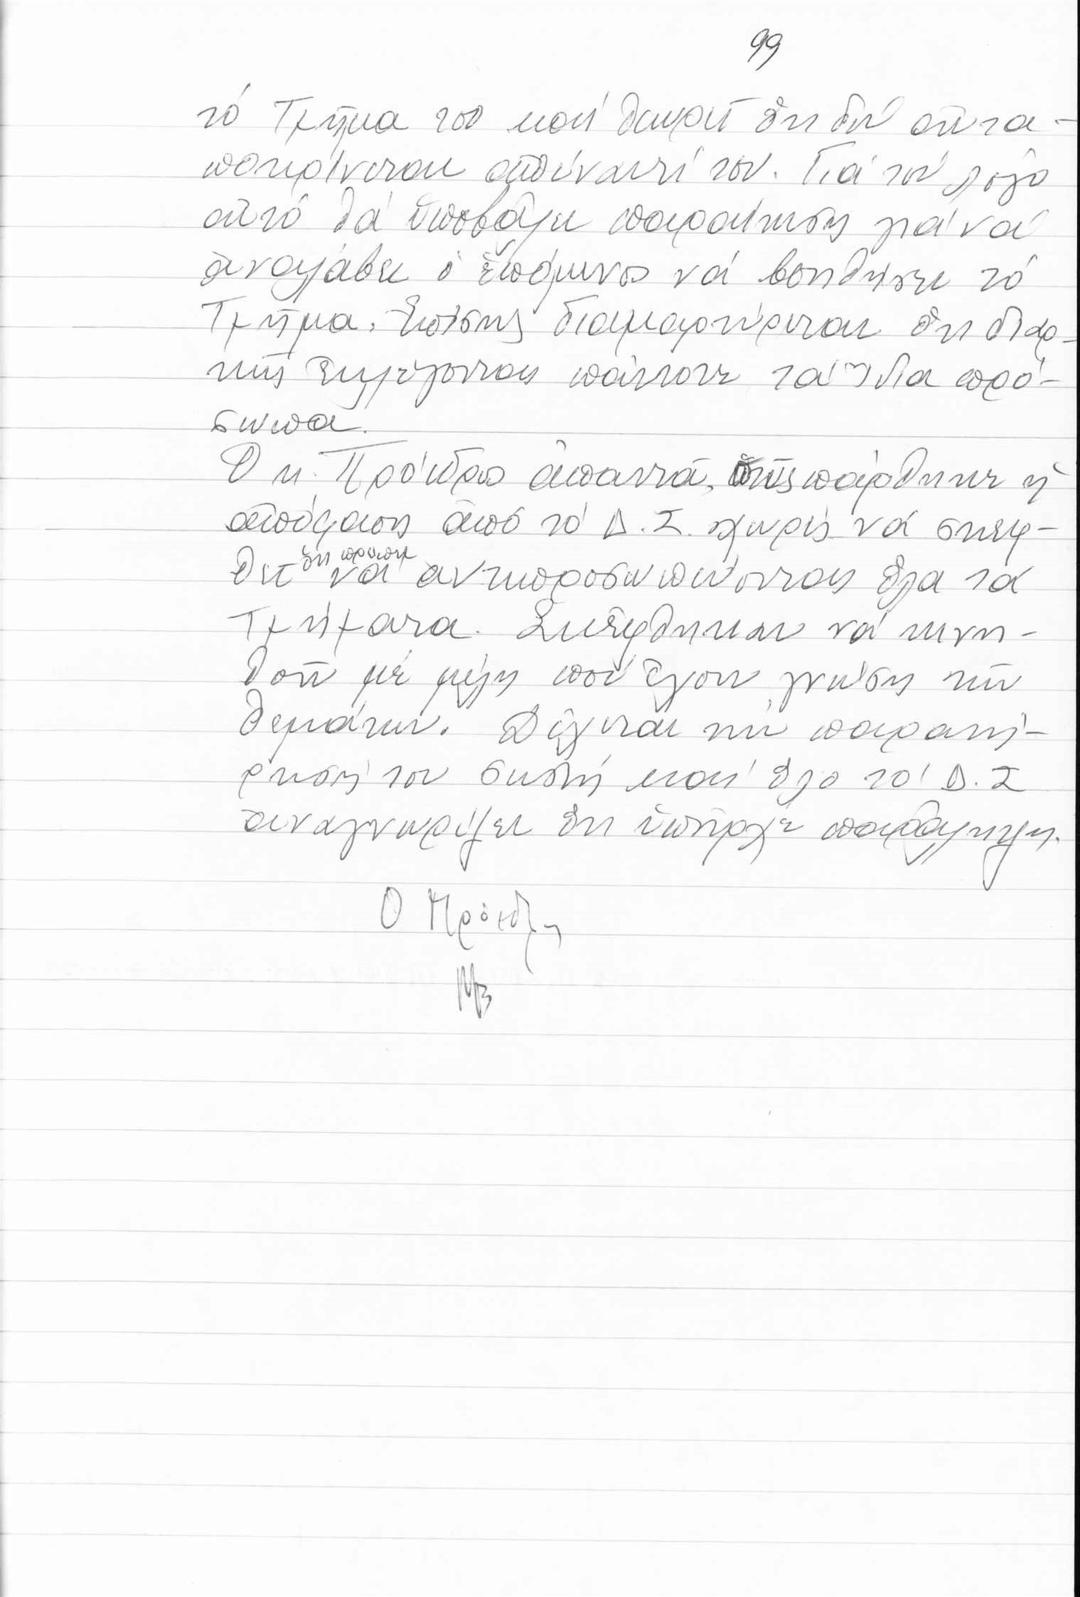 99
τό Τμῆμα του καί θεωρεῖ ὅτι δέν ἀντα-
ποκρίνεται ἀπέναντί του. Γιά τόν λόγο
αὐτό θά ὑποβάλει παραίτηση γιά νά
ἀναλάβει ὁ ἑπόμενος νά βοηθήσει τό
Τμῆμα. Ἐπίσης διαμαρτύρεται ὅτι διαρ-
κῶς ἐκλέγονται πάντοτε τά ἴδια πρό-
σωπα.
Ὁ κ. Πρόεδρος ἀπαντᾶ, πάρθηκε ἡ
ἀπόφαση ἀπό τό Δ.Σ. χωρίς νά σκεφ-
θεῖ ὅτι πρέπει νά ἀντιπροσωπεύονται ὅλα τά
Τμήματα. Σκέφθηκαν νά κινη-
θοῦν μέ μέλη πού ἔχουν γνώση τῶν
θεμάτων. Δέχεται τήν παρατή-
ρηση του σωστή καί ὅλο τό Δ.Σ
ἀναγνωρίζει ὅτι ὑπῆρχε παράλειψη.
Ο Πρόεδρος